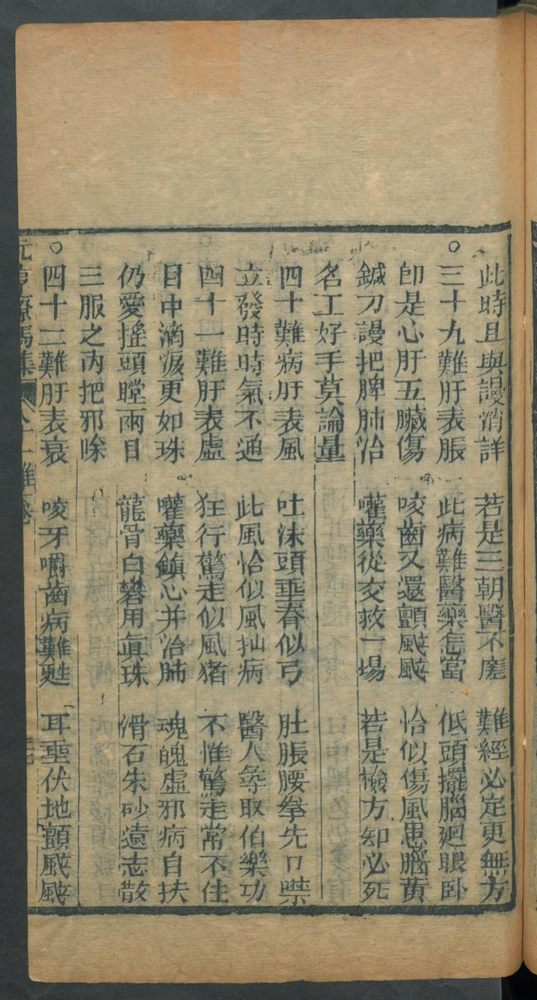 此時且與謾消詳　若是三朝醫不瘥　難經必定更無方
三十九難肝表脹　此病難醫藥怎當　低頭擺腦廻眼臥
卽是心肝五臟傷　咬齒又還顫颰颰　恰似傷風患腦黃
鍼刀謾把脾肺治　嚾藥從交救一塲　若是檢方知必死
名工好手莫論量
四十難病肝表風　吐沫頭垂春似弓　肚脹腰拳先口噤
立發時時氣不通　此風恰似風拙病　醫人等取伯樂功
四十一難肝表虛　狂行驚走似風猪　不惟驚走常不住
目中滴淚更如珠　嚾藥鎮心并治肺　魂魄虛邪病自扶
仍愛搖頭瞠兩目　龍骨白礬用眞珠　滑石朱砂遠志散
三服之內把邪除
四十二難肝表衰　咬牙嚼齒病難甦　耳垂伏地顫颰颰
元亨療馬集